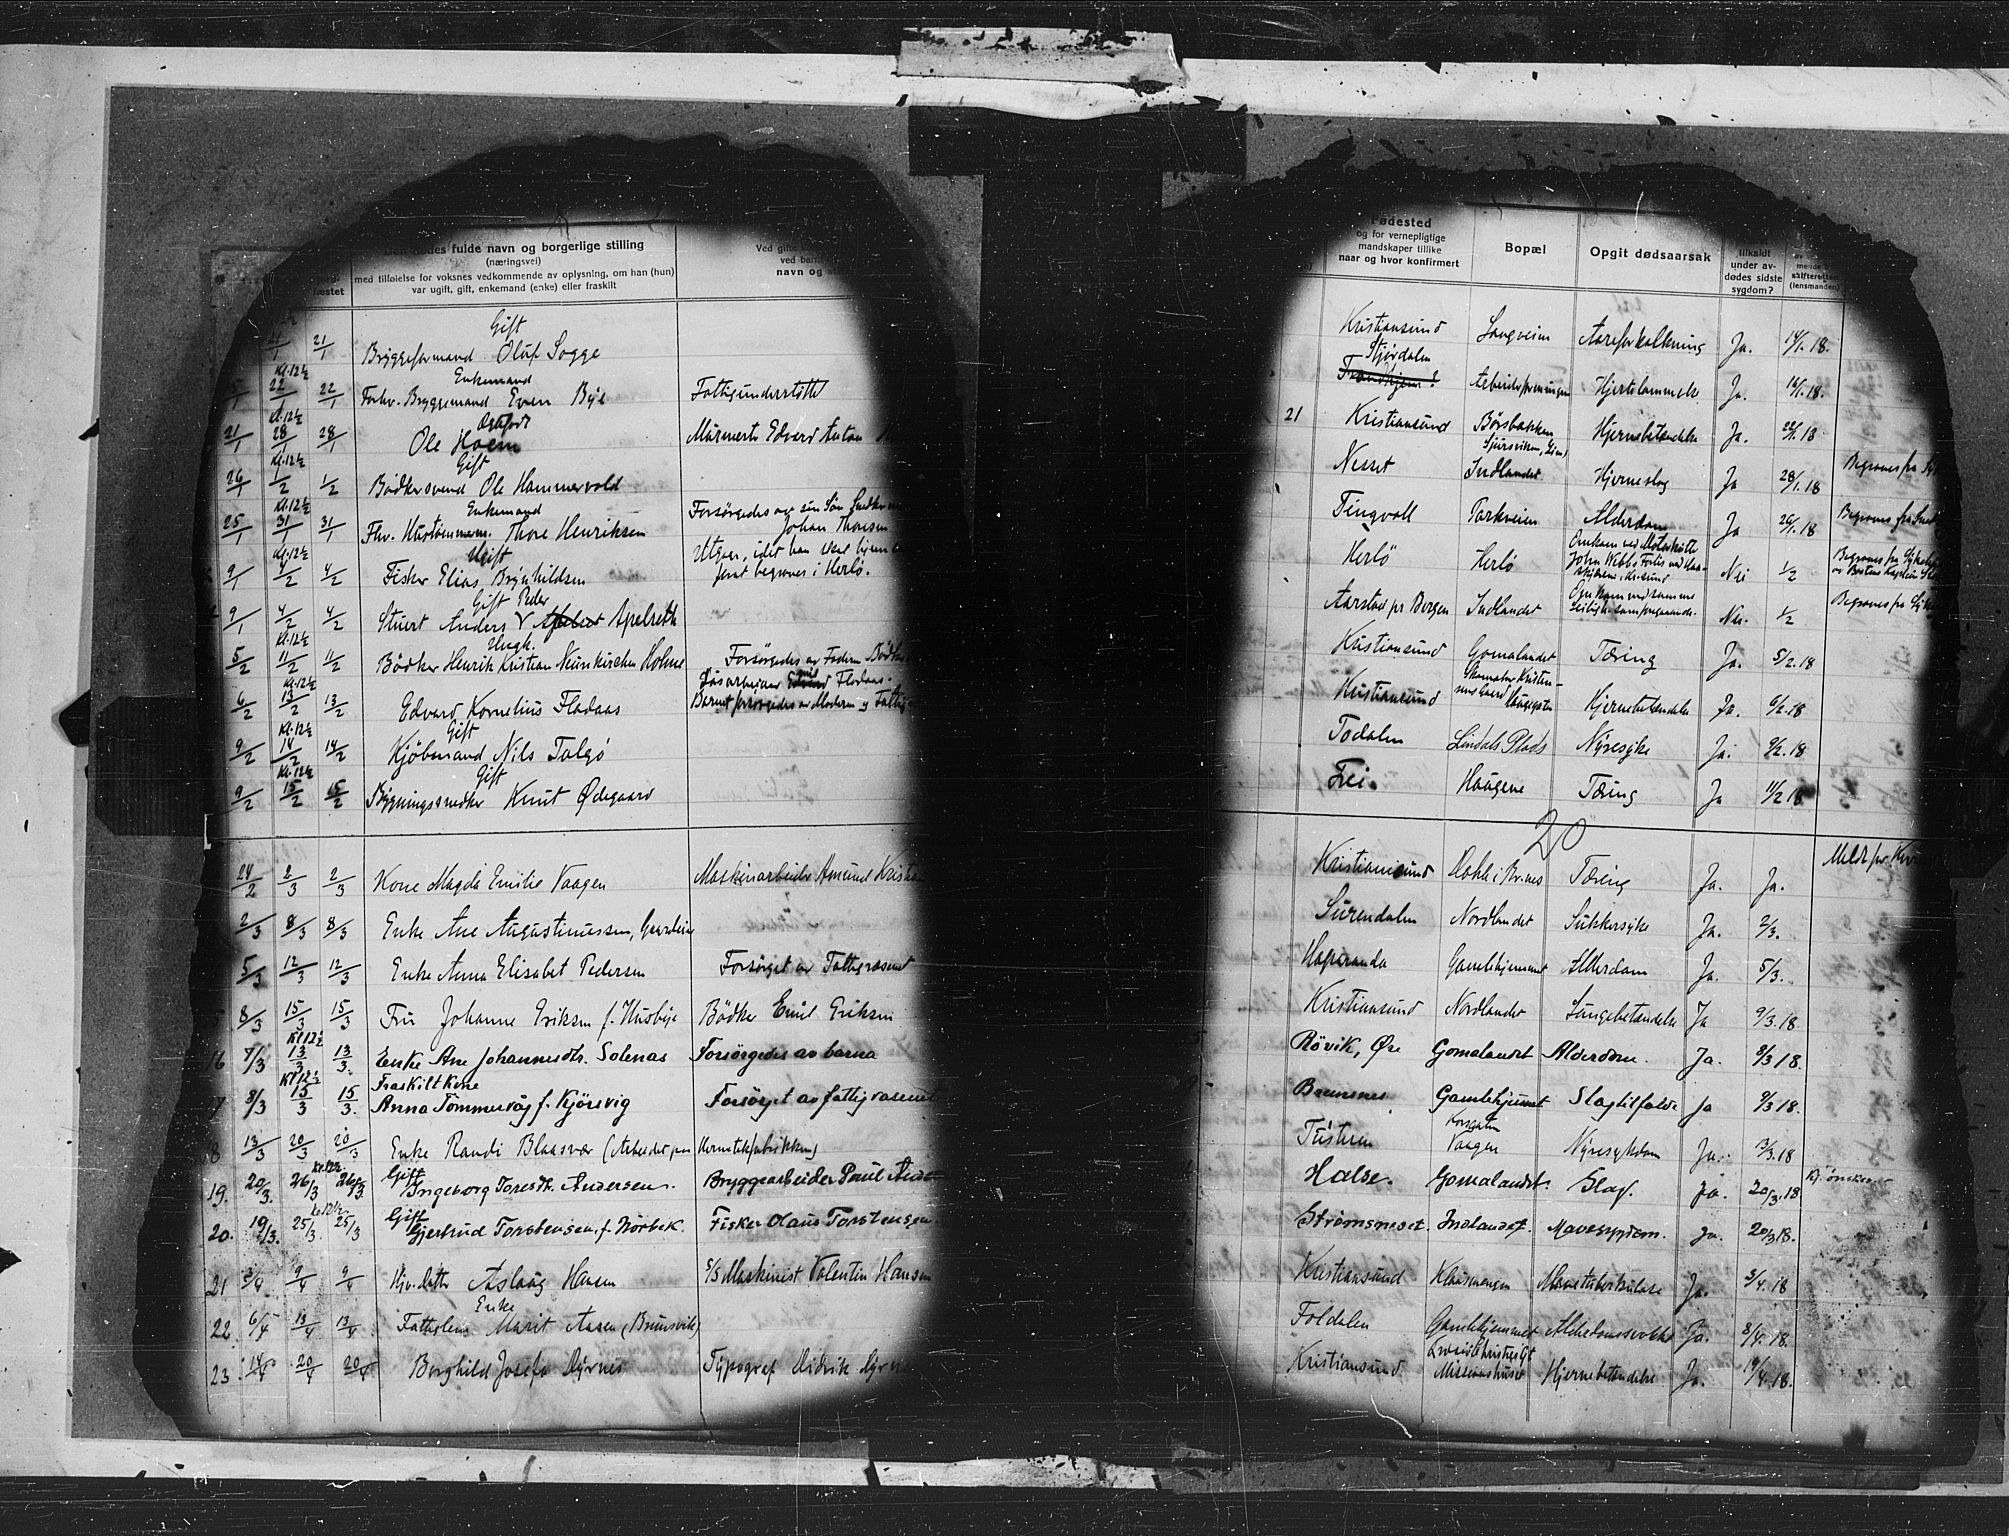 dødes fulde navn og borgerlige stilling
(næringsvei)
med tilføielse for voksnes vedkommende av oplysning, om han (hun)
var ugift, gift, enkemand (enke) eller fraskilt
Ved gifte
ved barn
navn og
Fødested
og for vernepligtige
mandskaper tillike
naar og hvor konfirmert
Bopæl
Opgit dødsaarsak
tilkaldt
under av-
dødes sidste
sygdom?
skifteretten
(lensmanden)
Gift
21/1 Bryggeformand Oluf Sogge Kristiansund Langveien Aareforkalkning Ja. 14/1.18.
Kl. 12½ Enkemand Stjørdalen
22/1 22/1 Forhv. Bryggemand Even Bye Fattigunderstøtte Hjertelammelse Ja. 16/1.18.
Kl. 12½
21/1 28/1 28/1 Ole Hoem Murmester Edvard Anton 21 Kristiansund Børsbakken Hjernebetændelse Ja.
Kl. 12½ Gift
26/1 1/2 1/2 Bødkersvend Ole Hammervold Nesset Indlandet Hjerneslag Ja 28/1.18 Begraves fra
Kl. 12½ Enkemand
25/1 31/1 31/1 Fhv. Hustømmerm. Thore Henriksen Forsørgedes av sin Søn Snedker Johan Thoresen Tingvoll Parkveien Alderdom Ja 26/1.18 Begraves fra
Kl. 12½ Ugift
9/1 4/2 4/2 Fisker Elias Brynhildsen Utgaar, idet han skal hjem først begraves i Herlø. Herlø Herlø Omkom ved Motorskøite John Webbs Forlis Nei 1/2 Begraves fra
Gift Peder
9/1 4/2 4/2 Stuert Anders V Apelseth Aarstad pr Bergen Indlandet Nei. 1/2 Begraves fra
Kl. 12½ Ungk.
5/2 11/2 11/2 Bødker Henrik Kristian Neunkirchen Holme Forsørgedes av Faderen Bødker Kristiansund Gomalandet Tæring Ja. 5/2.18
Kl. 12½ Løsarbeider Emil Fladaas.
6/2 13/2 13/2 Edvard Kornelius Fladaas Barnet forsørgedes av Moderen og Fattig Kristiansund Hjernebetændelse Ja. 6/2.18
Kl. 12½ Gift
9/2 14/2 14/2 Kjøbmand Nils Talgø Todalen Lindals Plads Nyresyke Ja. 9/2.18
Kl. 12½ Gift
9/2 15/2 15/2 Bygningssnedker Knut Ødegaard Frei. Haugene Tæring Ja 11/2 18
20
24/2 2/3 2/3 Kone Magda Emilie Vaagen Maskinarbeider Amund Kristian Kristiansund Tæring Ja. Ja. Meldt fra
2/3 8/3 8/3 Enke Ane Augustinussen, Surendalen Nordlandet Sukkersyke Ja. 2/3.
5/3 12/3 12/3 Enke Anna Elisabet Pedersen Forsørget av Fattigvæsenet Haparanda Gamlehjemmet Alderdom Ja. 5/3.
8/3 15/3 15/3 Fru Johanne Eriksen f. Husbye Bødker Emil Eriksen Kristiansund Nordlandet Lungebetændelse Ja 9/3.18
Kl 12½
16 7/3 13/3 13/3. Enke Ane Johannesdtr. Solenas Forsørgedes av barna Røvik, Øre Gomalandet Alderdom. Ja. 8/3 18.
Kl 12½ Fraskilt kone
7 8/3 15/3 15/3. Anna Tømmervåg f. Kjørsvig Forsørget av fattigvæsenet Bremsnes. Gamlehjemmet Slagtilfælde Ja 9/3 18.
18 13/3 20/3 20/3 Enke Randi Blaasvær (Arbeidet paa Hermetikfabrikken) Tustern Vaagen Nyresykdom Ja. 13/3.18
Gift
19. 20/3. 26/3 26/3. Ingeborg Toresdt. Andersen. Bryggearbeider Paul Ander Halse. Gomalandet. Slag. Ja. 20/3.18
Gift
20. 19/3. 25/3 25/3 Gjertrud Torstensen, f. Nørbek Fisker Olaus Torstensen Strømsneset Indlandet. Mavesygdom. Ja. 20/3 18.
21 3/4 9/4 9/4 Hjv. datter Aslaug Hansen Maskinist Valentin Hansen Kristiansund Klausvengen Mavetuberkulose Ja. 3/4.18
Enke
22 6/4 13/4 13/4 Marit Aasen (Brunsvik) Foldalen Gamlehjemmet Alderdomssvækk Ja. 8/4.18.
23 14/4 20/4 20/4 Borghild Josefa Dyrnes Typograf Didrik Dyrnes Kristiansund. Missionshuset Hjernebetændelse Ja. 19/4.18.